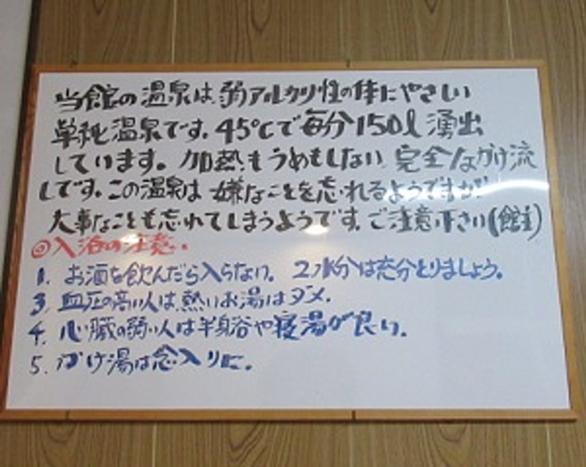 当館の温泉は、弱アルカリ性の体にやさしい
単純温泉です。45℃で毎分150ℓ湧出
しています。加熱もうめもしない完全なかけ流
しです。この温泉は嫌なことを忘れるようですが!!
大事なことも忘れてしまうようです。ご注意下さい(館主)
◎入浴の注意.
1. お酒を飲んだら入らない。 2水分は充分とりましょう。
3. 血圧の高い人は熱いお湯はダメ.
4. 心臓の弱い人は半身浴や寝湯が良い.
5. かけ湯は念入りに.